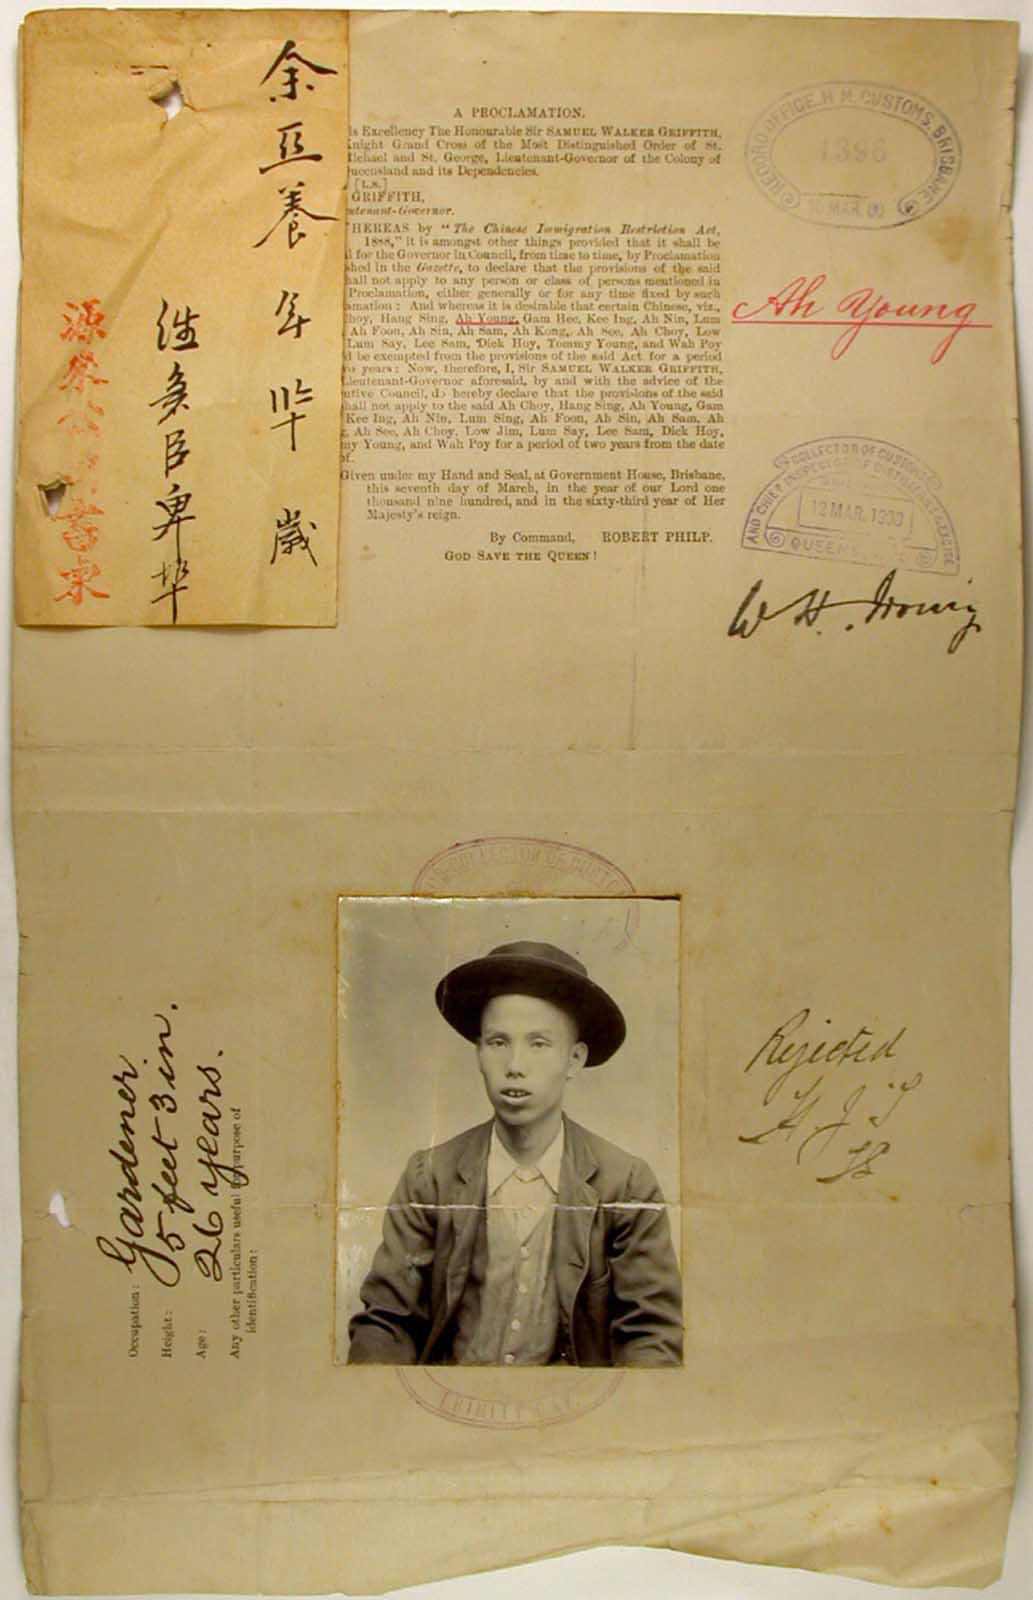 余亞養年卅歲
源
A PROCLAMATION.
is Excellency The Honourable Sir SAMUEL WALKER GRIFFITH,
night Grand Cross of the Most Distinguished Order of St.
ichael and St. George, Lieutenant-Governor of the Colony of
ueensland and its Dependencies.
[L.S.]
GRIFFITH,
utenant-Governor.
HEREAS by "The Chinese Immigration Restriction Act,
1888," it is amongst other things provided that it shall be
l for the Governor in Council, from time to time, by Proclamation
shed in the Gazette, to declare that the provisions of the said
hall not apply to any person or class of persons mentioned in
Proclamation, either generally or for any time fixed by such
amation: And whereas it is desirable that certain Chinese, viz.,
hoy, Hang Sing, Ah Young, Gam Hee, Kee Ing, Ah Nin, Lum
Ah Foon, Ah Sin, Ah Sam, Ah Kong, Ah See, Ah Choy, Low
Lum Say, Lee Sam, Dick Hoy, Tommy Young, and Wah Poy
d be exempted from the provisions of the said Act for a period
o years: Now, therefore, I, Sir SAMUEL WALKER GRIFFITH,
Lieutenant-Governor aforesaid, by and with the advice of the
utive Council, do hereby declare that the provisions of the said
hall not apply to the said Ah Choy, Hang Sing, Ah Young, Gam
Kee Ing, Ah Nin, Lum Sing, Ah Foon, Ah Sin, Ah Sam, Ah
g, Ah See, Ah Choy, Low Jim, Lum Say, Lee Sam, Dick Hoy,
my Young, and Wah Poy for a period of two years from the date
of.
Given under my Hand and Seal, at Government House, Brisbane,
this seventh day of March, in the year of our Lord one
thousand nine hundred, and in the sixty-third year of Her
Majesty's reign.
By Command, ROBERT PHILP.
GOD SAVE THE QUEEN!
RECORD OFFICE, H.M. CUSTOMS, BRISBANE
1396
10 MAR. 00
Ah Young
COLLECTOR OF CUSTOMS
AND CHIEF INSPECTOR OF DISTILLERIES & EXCISE
12 MAR. 1900
QUEENSLAND
W H. Irving
COLLECTOR OF CUSTOMS
Rejected
Occupation: Gardener
Height: 5 feet 3 in.
Age: 26 years.
Any other particulars useful for purpose of
identification: